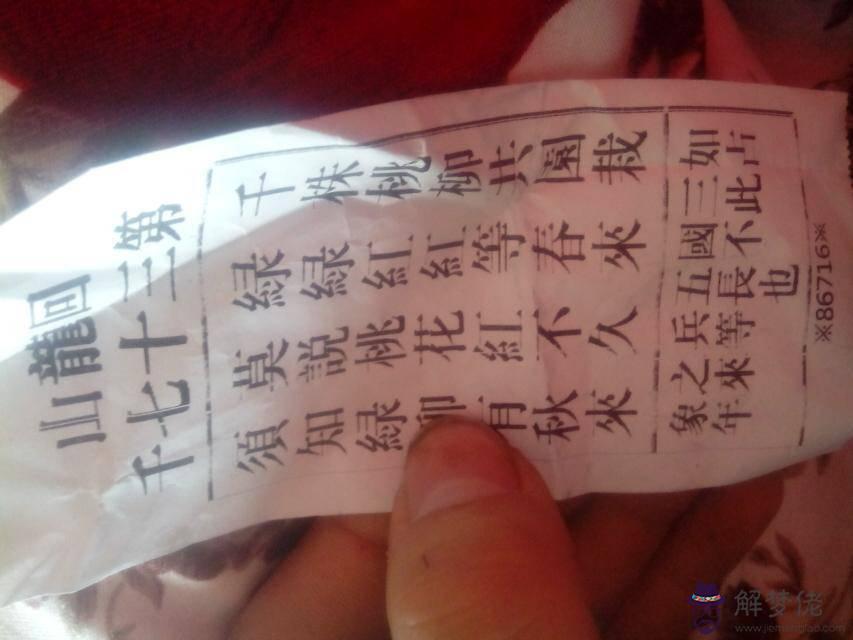 回龍山
第三十七千
千株桃柳共園栽
綠綠紅紅等春來
莫說桃花紅不久
須知綠柳有秋來
如三國五兵之象
占此不長等來年
也
※86716※
解梦佬
www.jiemenglao.com